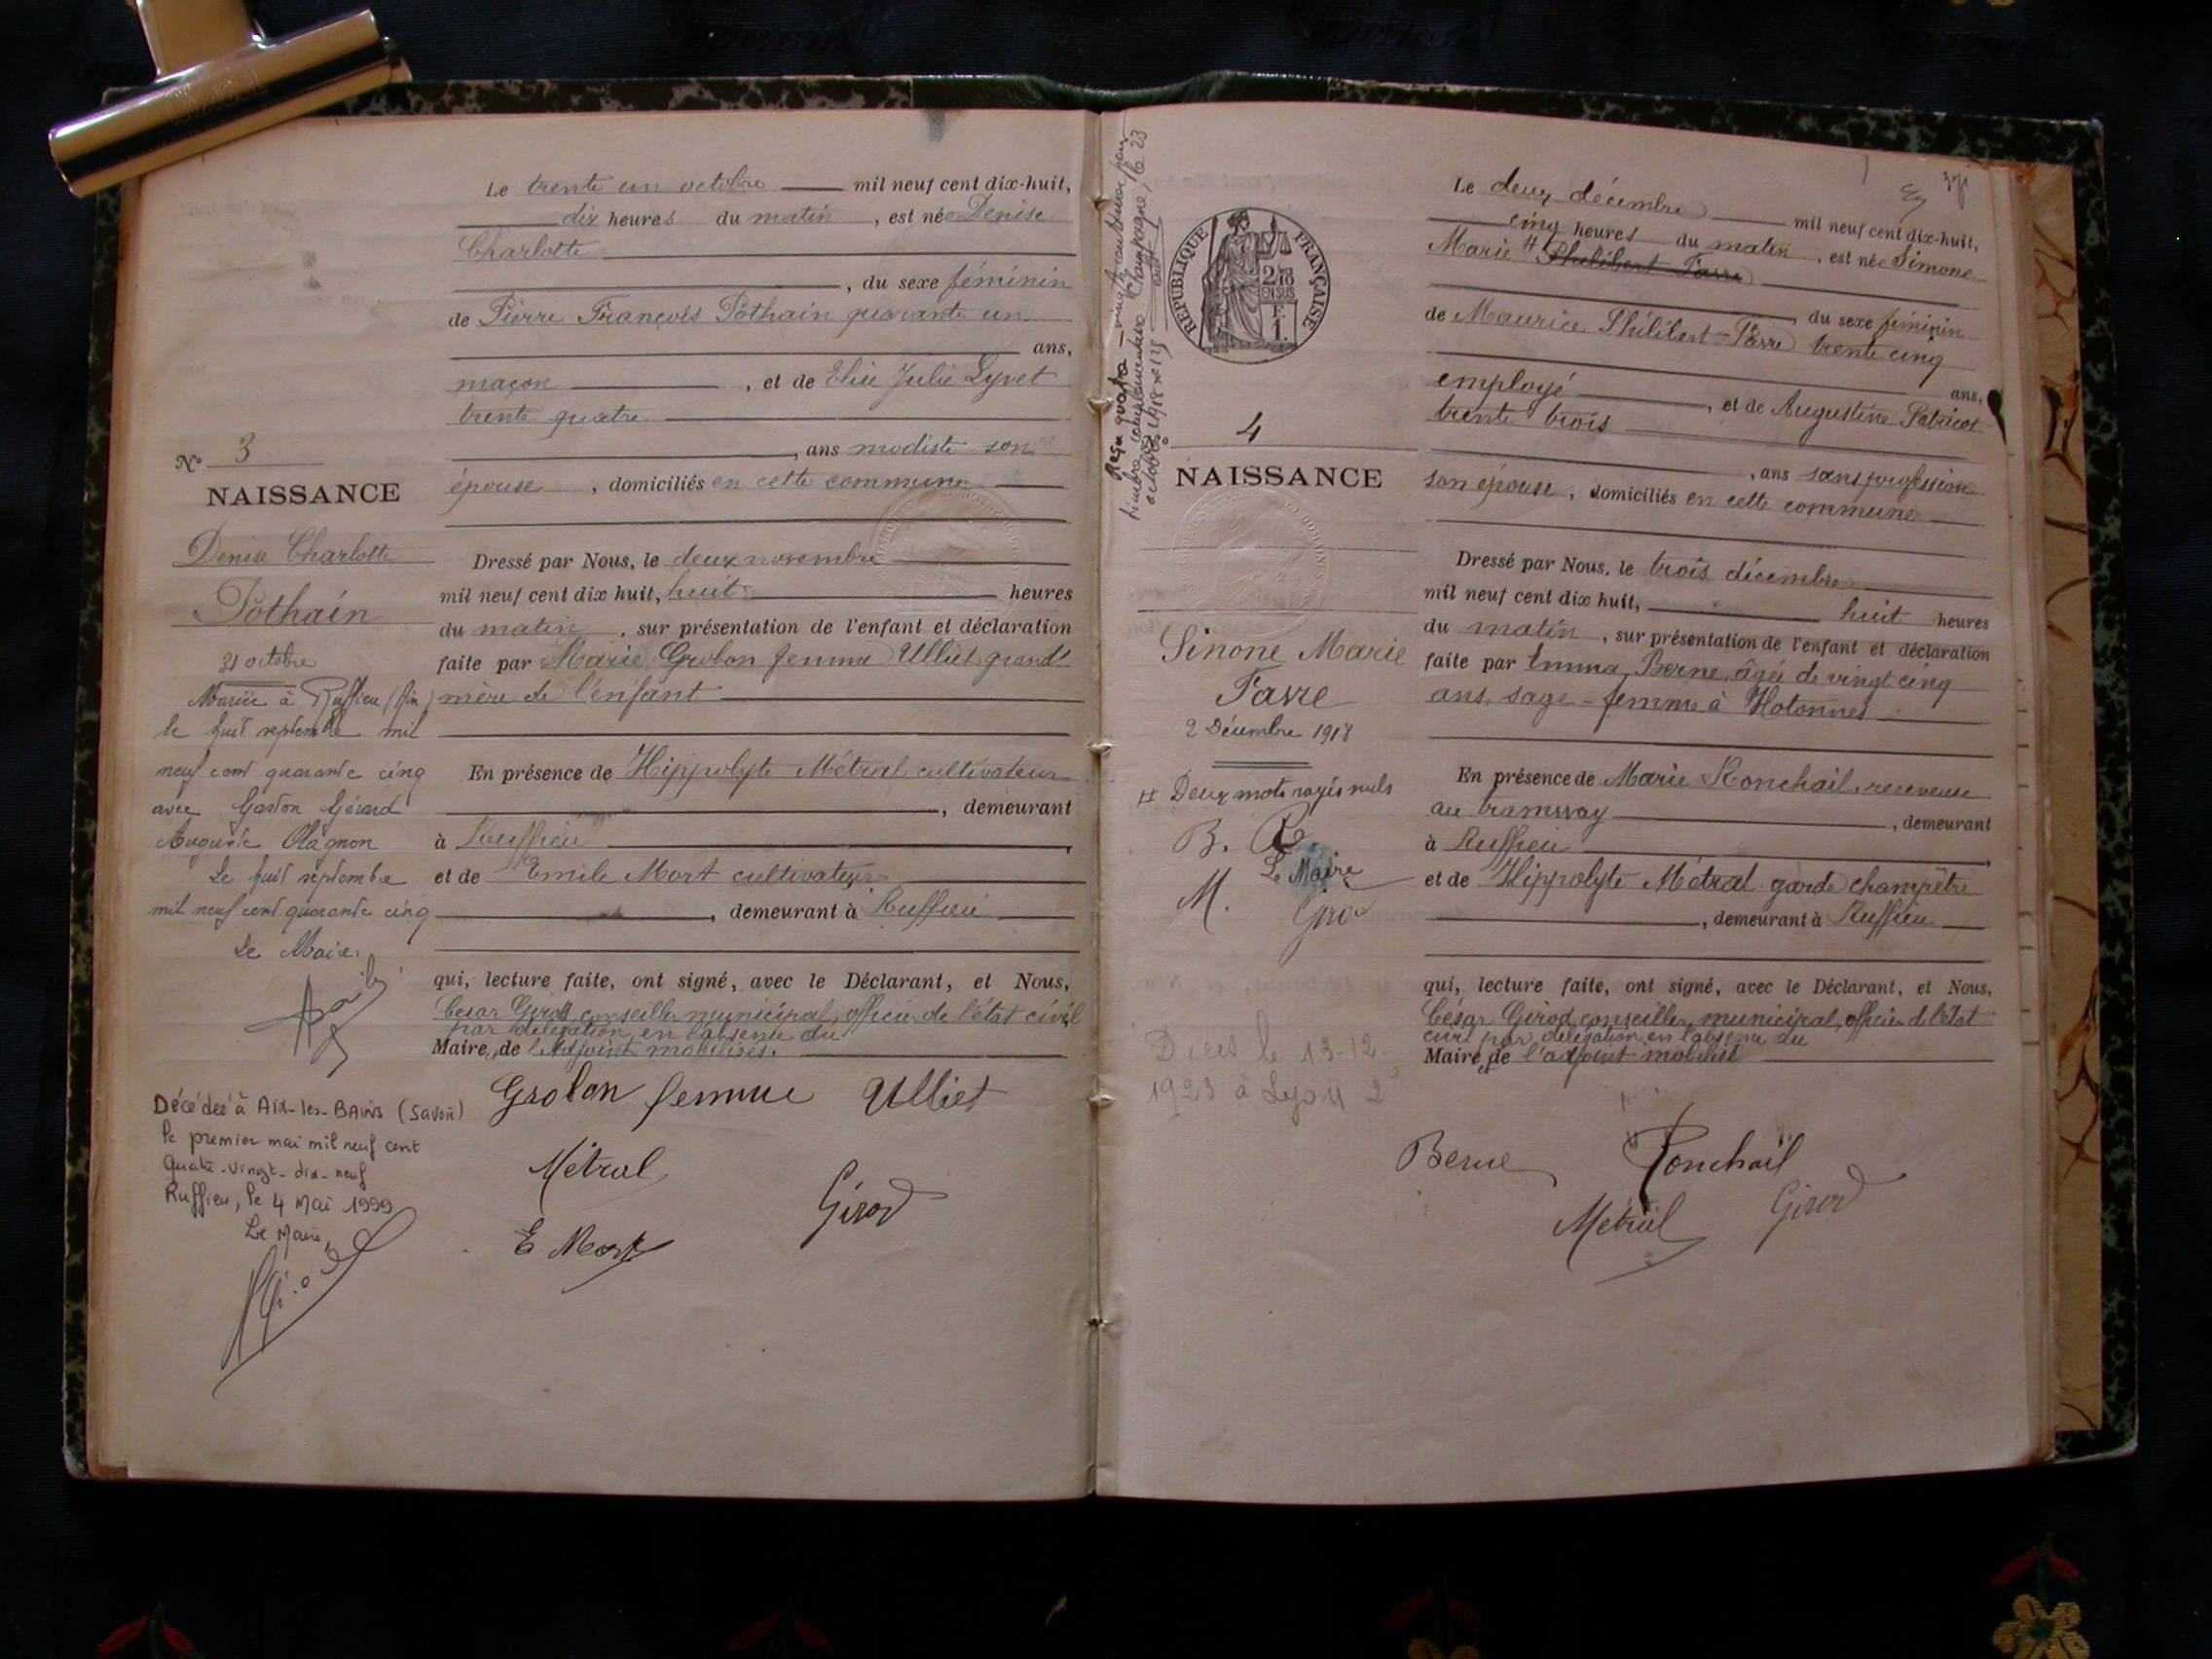 N° 3
NAISSANCE
Denise Charlotte
Pothain
31 octobre
Mariée à Ruffieu (Ain)
le huit septembre mil
neuf cent quarante cinq
avec Gaston Gérard
Auguste Olagnon
Le huit septembre
mil neuf cent quarante cinq
Le Maire:
Décédée à Aix-les-Bains (Savoie)
le premier mai mil neuf cent
quatre-vingt-dix-neuf
Ruffieu, le 4 Mai 1999
Le Maire,
Le trente un octobre mil neuf cent dix-huit,
dix heures du matin, est née Denise
Charlotte
, du sexe féminin
de Pierre François Pothain quarante un
ans,
maçon, et de Elise Julie Lyvet
trente quatre
, ans modiste son
épouse, domiciliés en cette commune
Dressé par Nous, le deux novembre
mil neuf cent dix huit, huit heures
du matin, sur présentation de l'enfant et déclaration
faite par Marie Grobon femme Ulliet grand'
mère de l'enfant
En présence de Hippolyte Métral cultivateur
, demeurant
à Ruffieu,
et de Emile Mort cultivateur
, demeurant à Ruffieu
qui, lecture faite, ont signé, avec le Déclarant, et Nous,
César Girod conseiller municipal, officier de l'état civil
par délégation en l'absence du
Maire, de l'Adjoint mobilisés.
Grobon femme Ulliet
Métral
Girod
E Mort
RÉPUBLIQUE FRANÇAISE
2/10
EN SUS
F.
1.
4
NAISSANCE
Simone Marie
Favre
2 Décembre 1918
# Deux mots rayés nuls
B. R.
Le Maire
M. Giro
Décès le 13-12.
1923 à Lyon 2°
Le deux décembre mil neuf cent dix-huit,
cinq heures du matin, est née Simone
Marie # Philibert Favre
, du sexe féminin
de Maurice Philibert-Favre trente cinq
ans,
employé, et de Augustine Patricot
trente trois
, ans sans profession
son épouse, domiciliés en cette commune
Dressé par Nous, le trois décembre
mil neuf cent dix huit, huit heures
du matin, sur présentation de l'enfant et déclaration
faite par Emma Berne, âgée de vingt cinq
ans, sage-femme à Hotonnes
En présence de Marie Ronchail, receveuse
au tramway, demeurant
à Ruffieu,
et de Hippolyte Métral garde champêtre
, demeurant à Ruffieu
qui, lecture faite, ont signé, avec le Déclarant, et Nous,
César Girod conseiller municipal, officier de l'état
civil par délégation en l'absence du
Maire et de l'adjoint mobilisé
Berne Ronchail
Métral Girod